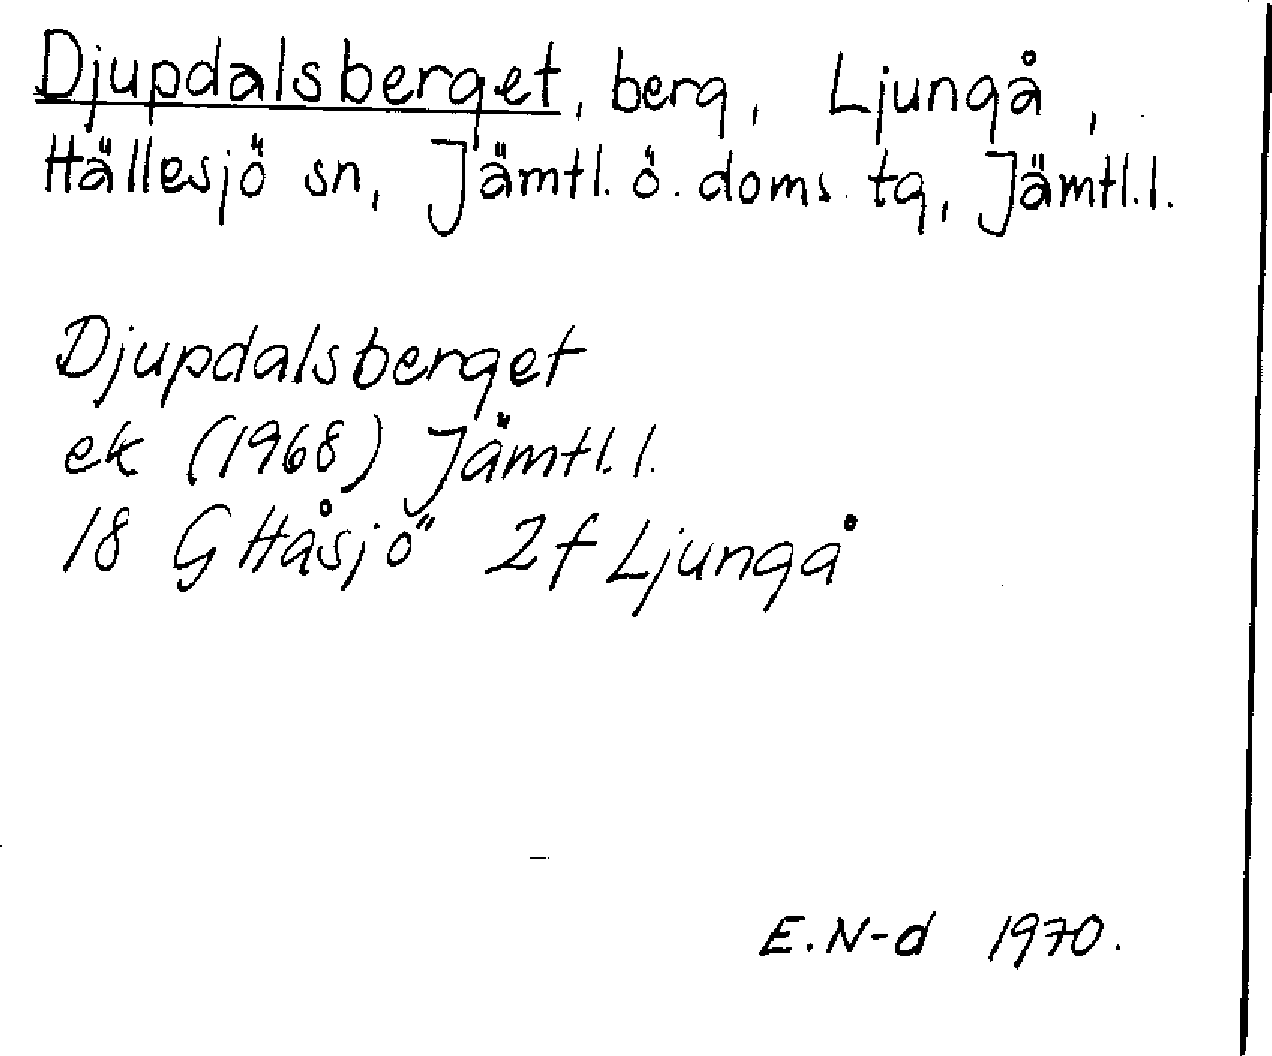 Djupdalsberget, berg, Ljungå,
Hällesjö sn, Jämtl. ö. doms. tg, Jämtl.l.
Djupdalsberget
ek (1968) Jämtl. l.
18 G Håsjö 2f Ljungå
E.N-d 1970.